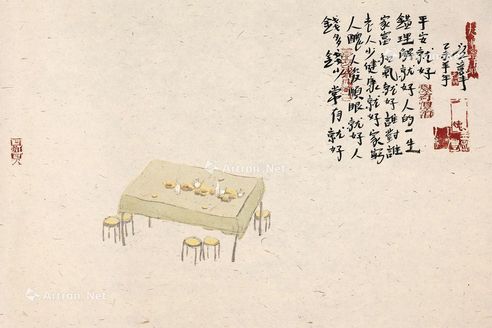 錢多錢少常有就好
人醜人俊順眼就好人
老人少健康就好家窮
家富和氣就好誰對誰
錯理解就好人的一生
平安就好
Artron.Net
Artron.Net
Artron.Net